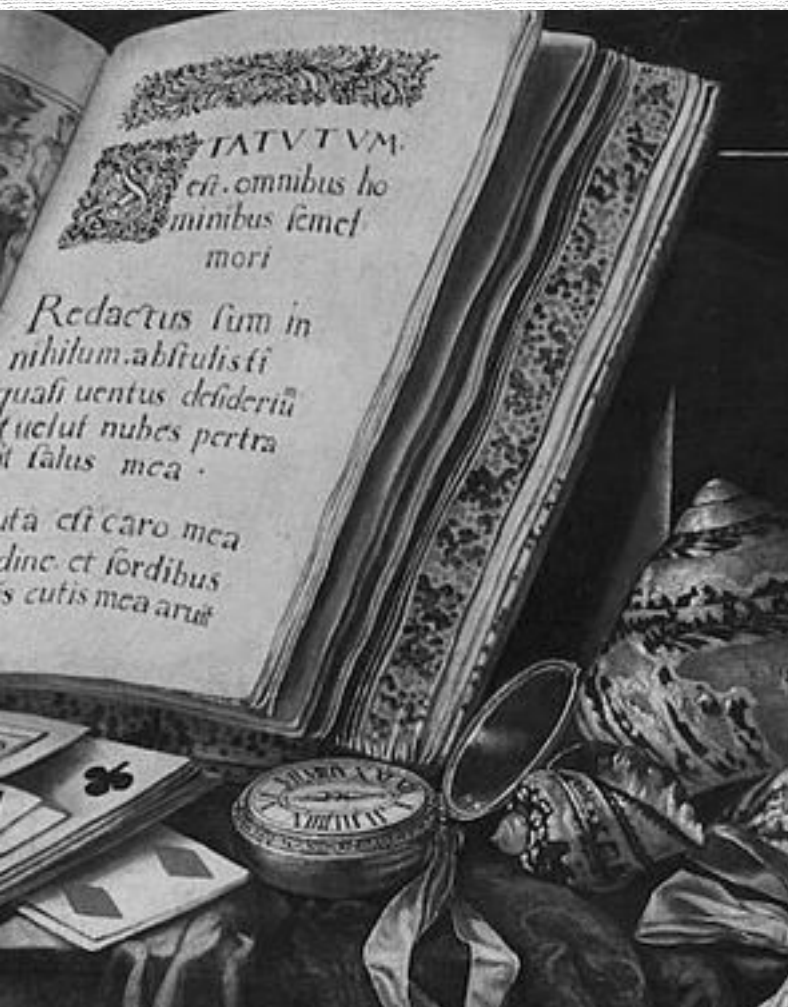 STATVTVM
est. omnibus ho
minibus semel
mori
Redactus sum in
nihilum. abstulisti
quasi uentus desideriũ
uelut nubes pertra
salus mea ·
est caro mea
et sordibus
cutis mea aruit